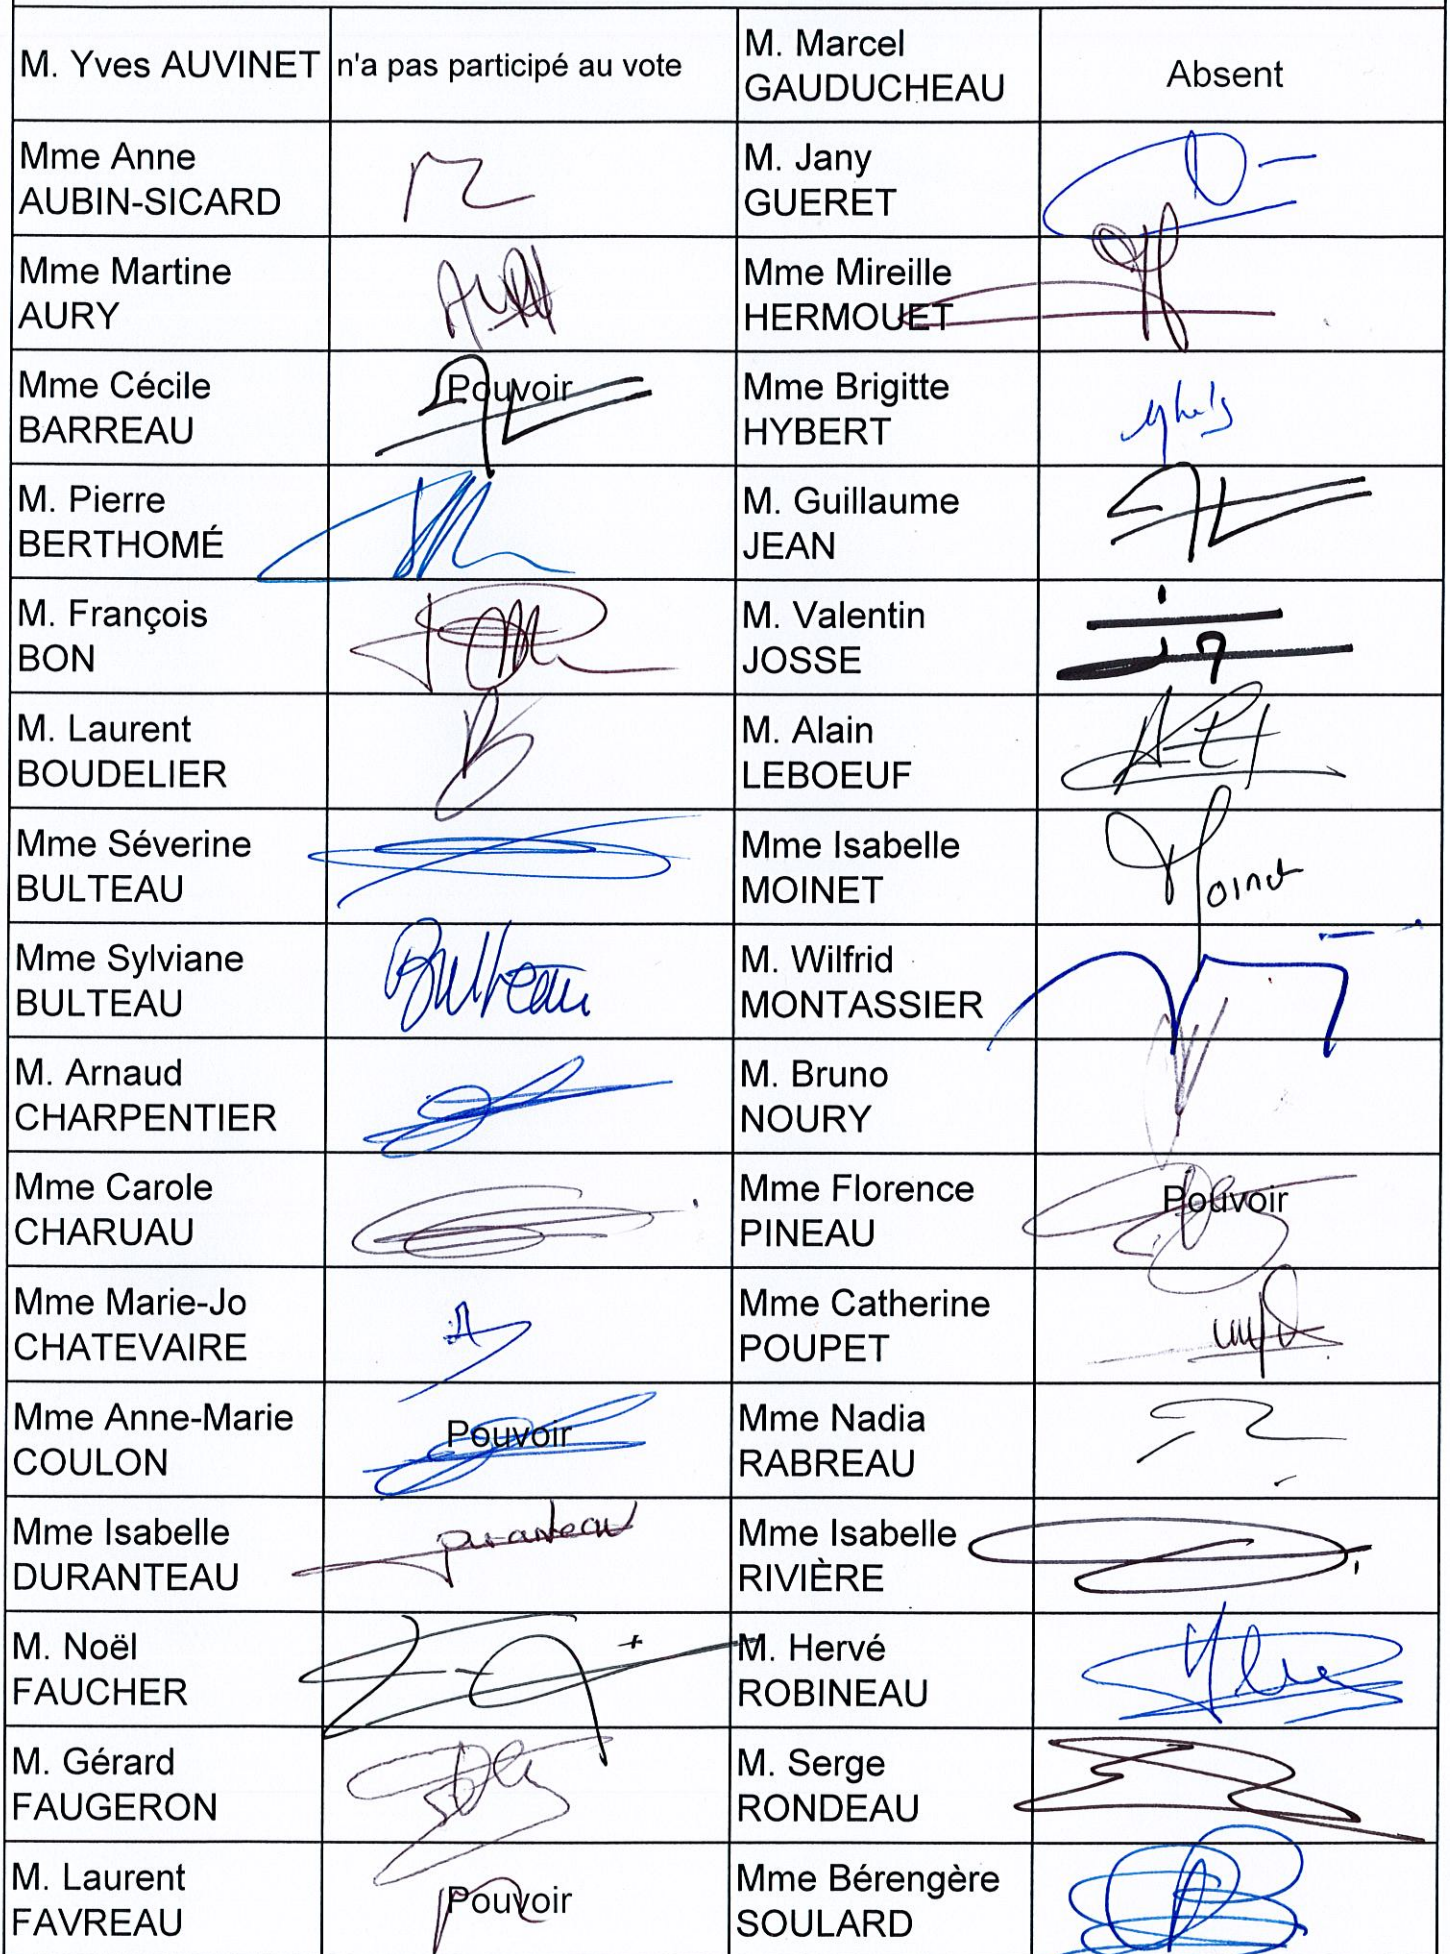 M. Yves AUVINET n'a pas participé au vote
M. Marcel
GAUDUCHEAU
Absent
Mme Anne
AUBIN-SICARD
M. Jany
GUERET
Mme Martine
AURY
Mme Mireille
HERMOUET
Mme Cécile
BARREAU
Pouvoir
Mme Brigitte
HYBERT
M. Pierre
BERTHOMÉ
M. Guillaume
JEAN
M. François
BON
M. Valentin
JOSSE
M. Laurent
BOUDELIER
M. Alain
LEBOEUF
Mme Séverine
BULTEAU
Mme Isabelle
MOINET
Moinet
Mme Sylviane
BULTEAU
Bulteau
M. Wilfrid
MONTASSIER
M. Arnaud
CHARPENTIER
M. Bruno
NOURY
Mme Carole
CHARUAU
Mme Florence
PINEAU
Pouvoir
Mme Marie-Jo
CHATEVAIRE
Mme Catherine
POUPET
Mme Anne-Marie
COULON
Pouvoir
Mme Nadia
RABREAU
Mme Isabelle
DURANTEAU
Duranteau
Mme Isabelle
RIVIÈRE
M. Noël
FAUCHER
M. Hervé
ROBINEAU
M. Gérard
FAUGERON
M. Serge
RONDEAU
M. Laurent
FAVREAU
Pouvoir
Mme Bérengère
SOULARD